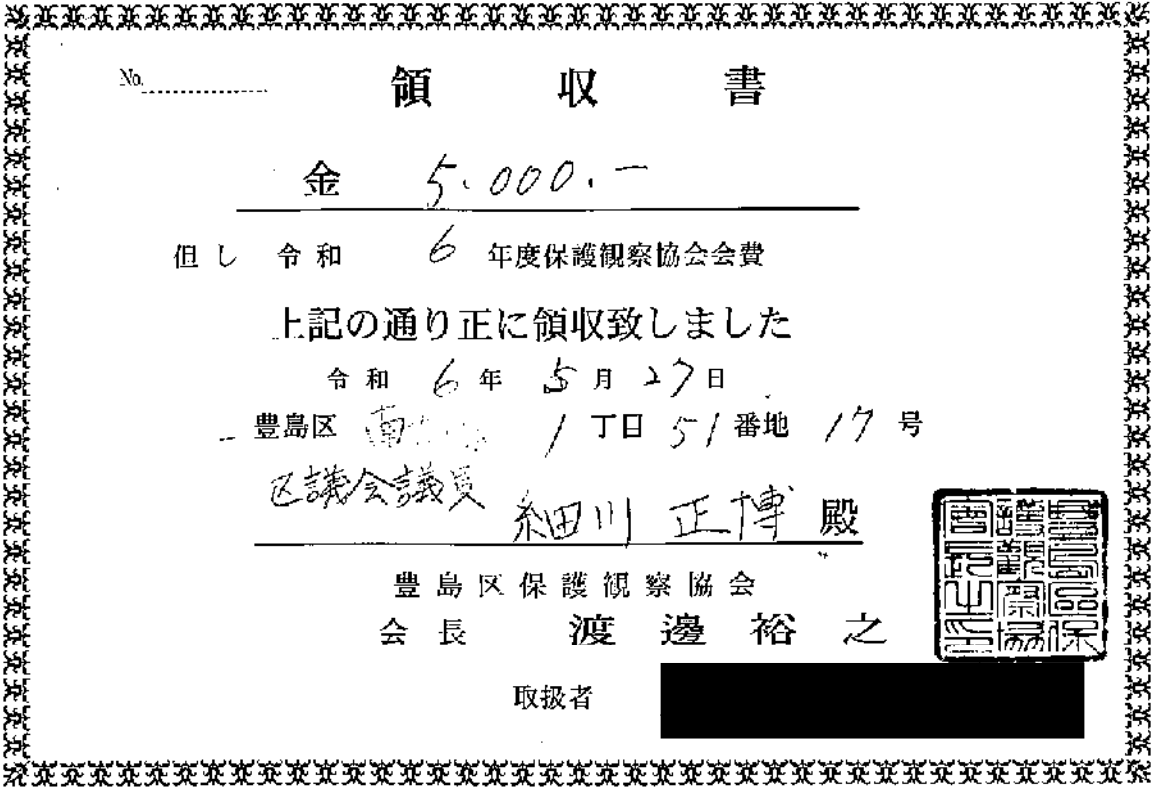 No.
領収書
金 5.000.-
但し 令和 6 年度保護観察協会会費
上記の通り正に領収致しました
令和 6 年 5 月 27 日
豊島区 南 1 丁目 51 番地 17 号
区議会議員
細川 正博 殿
豊島区保護観察協会
会長 渡邊裕之
取扱者
豊島区保護観察協会長之印